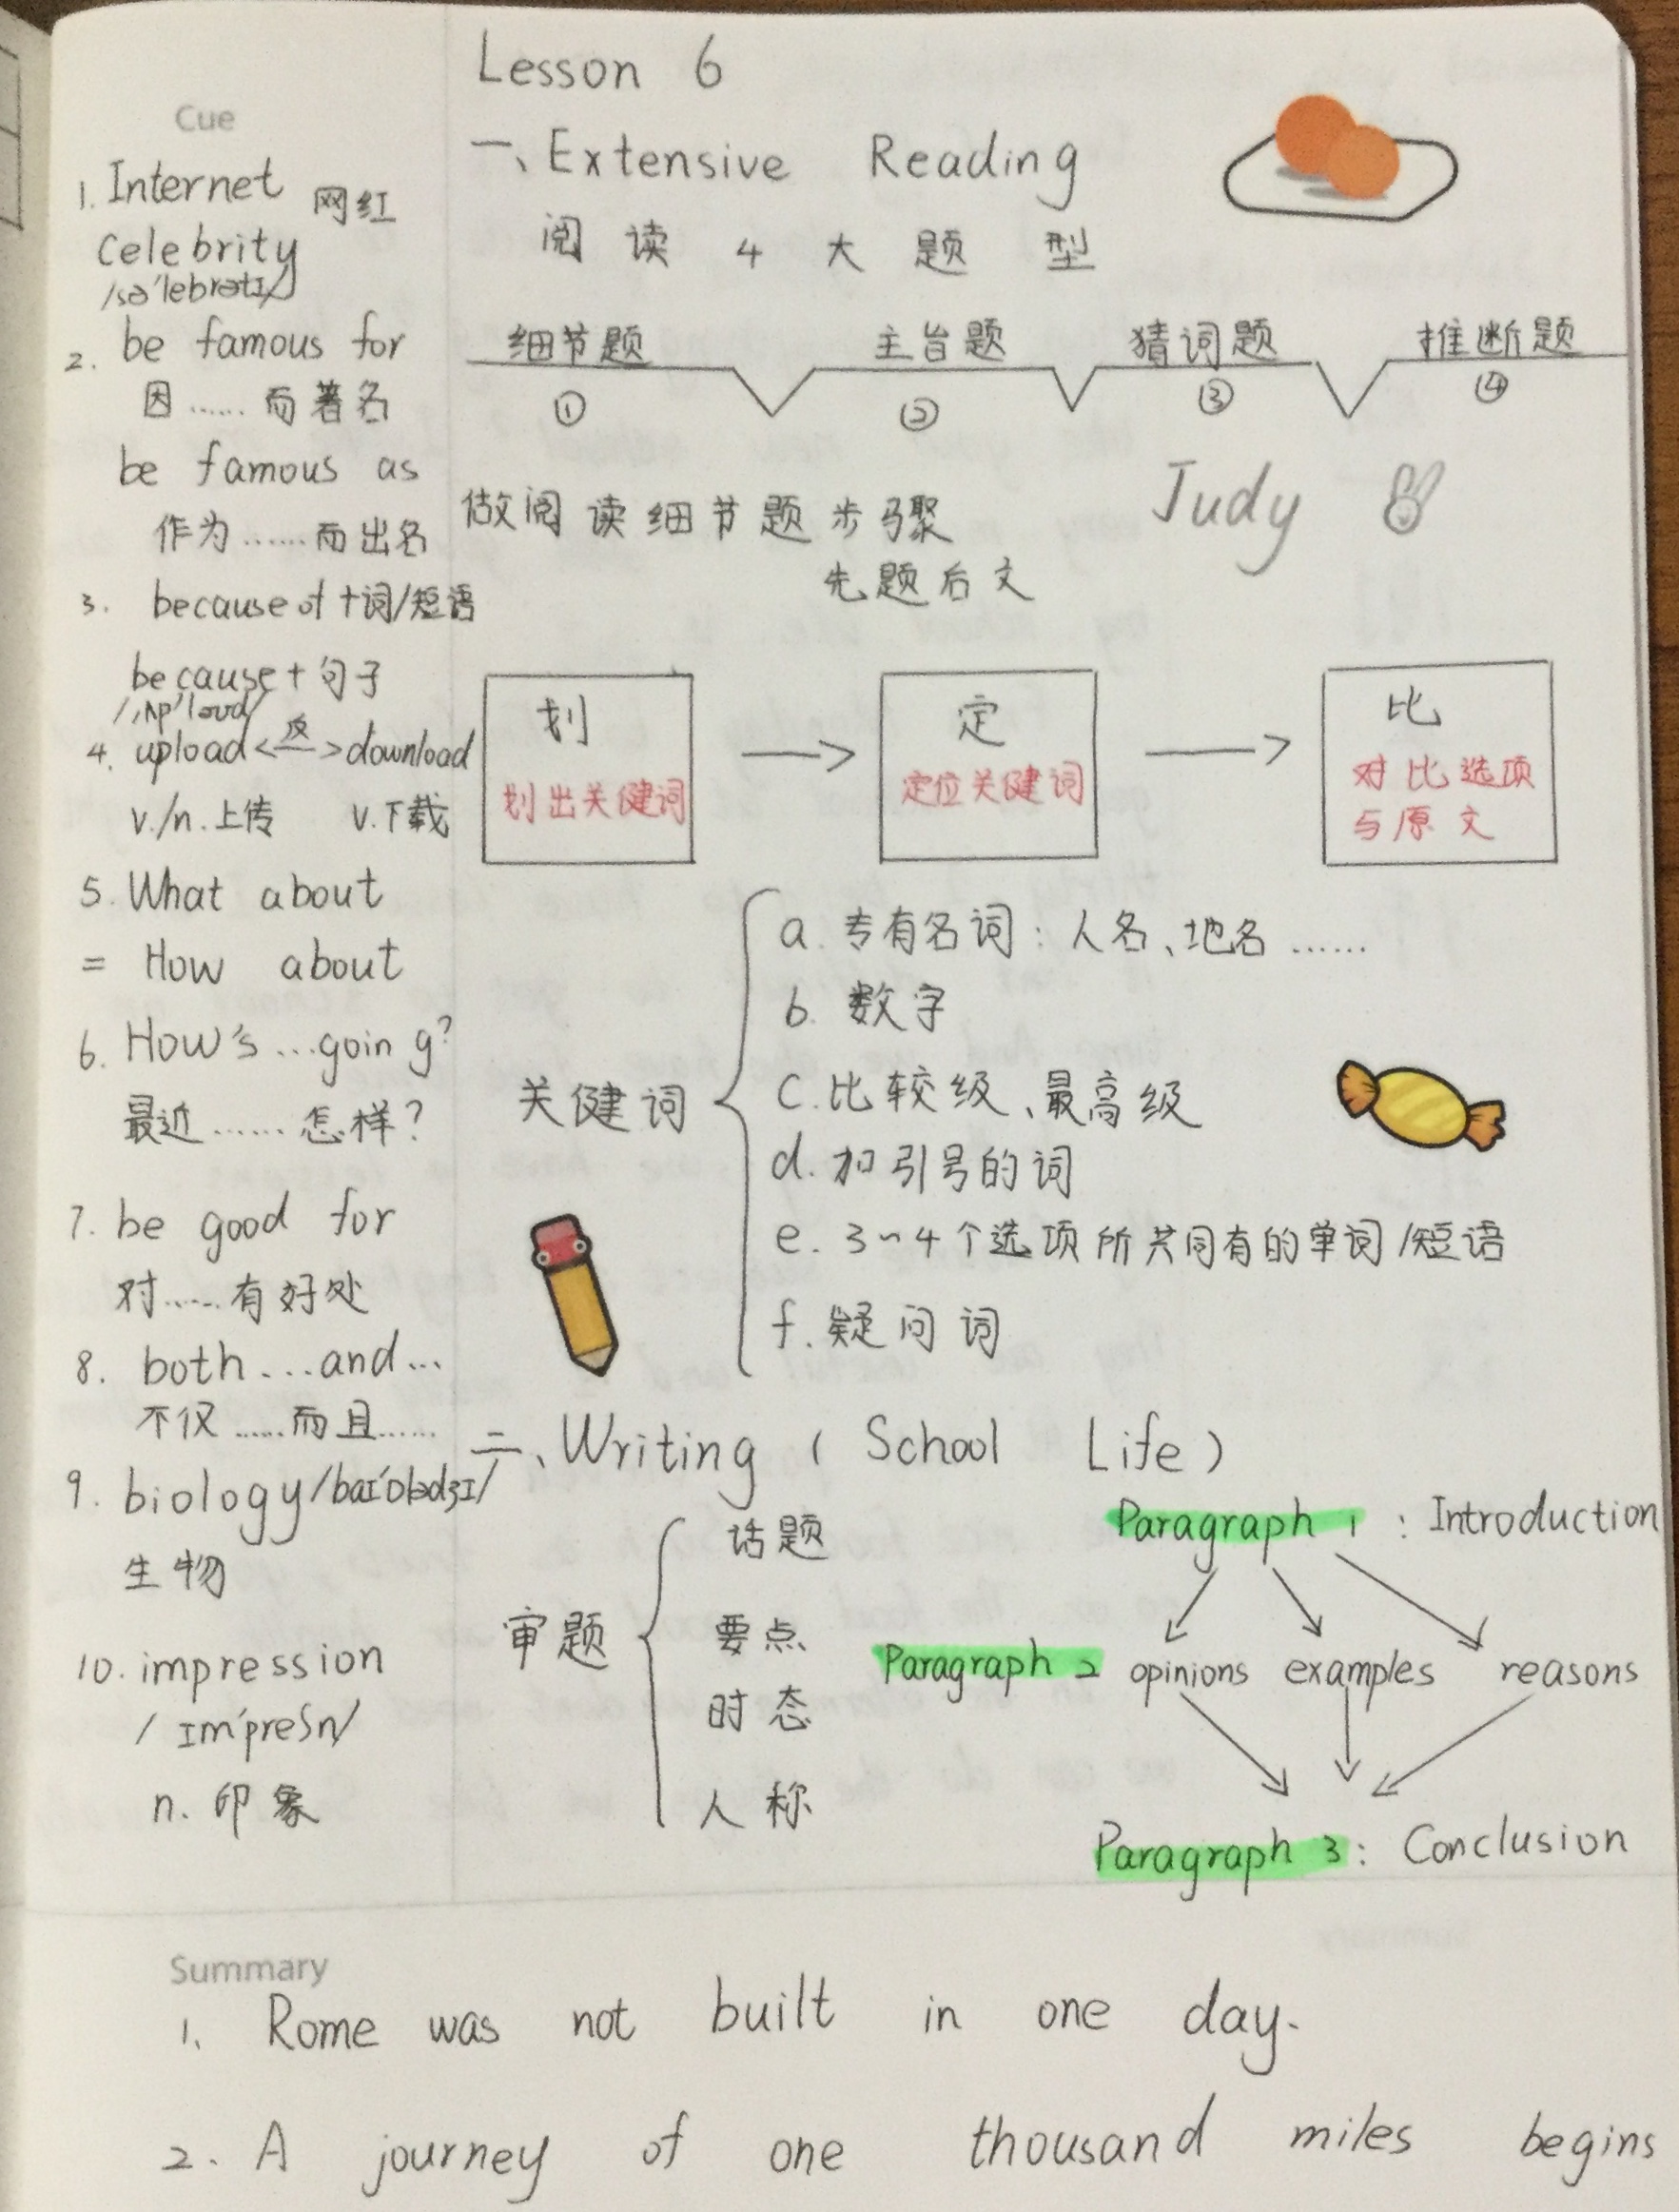 Lesson 6
Cue
1. Internet 网红
Celebrity
/sə'lebrətɪ/
2. be famous for
因……而著名
be famous as
作为……而出名
3. because of +词/短语
because + 句子
/ˌʌp'ləʊd/
4. upload <反> download
v./n.上传 v.下载
5. What about
= How about
6. How's …going?
最近……怎样?
7. be good for
对……有好处
8. both …and…
不仅……而且……
9. biology /baɪ'ɒlədʒɪ/
生物
10. impression
/ɪm'preʃn/
n. 印象
一、Extensive Reading
阅读4大题型
细节题 主旨题 猜词题 推断题
① ② ③ ④
做阅读细节题步骤
Judy
先题后文
划 定 比
划出关健词 定位关健词 对比选项
与原文
关健词
a. 专有名词: 人名、地名……
b. 数字
c. 比较级、最高级
d. 加引号的词
e. 3~4个选项所共同有的单词/短语
f. 疑问词
二、Writing (School Life)
审题
话题
要点
时态
人称
Paragraph 1 : Introduction
Paragraph 2 opinions examples reasons
Paragraph 3: Conclusion
Summary
1. Rome was not built in one day.
2. A journey of one thousand miles begins